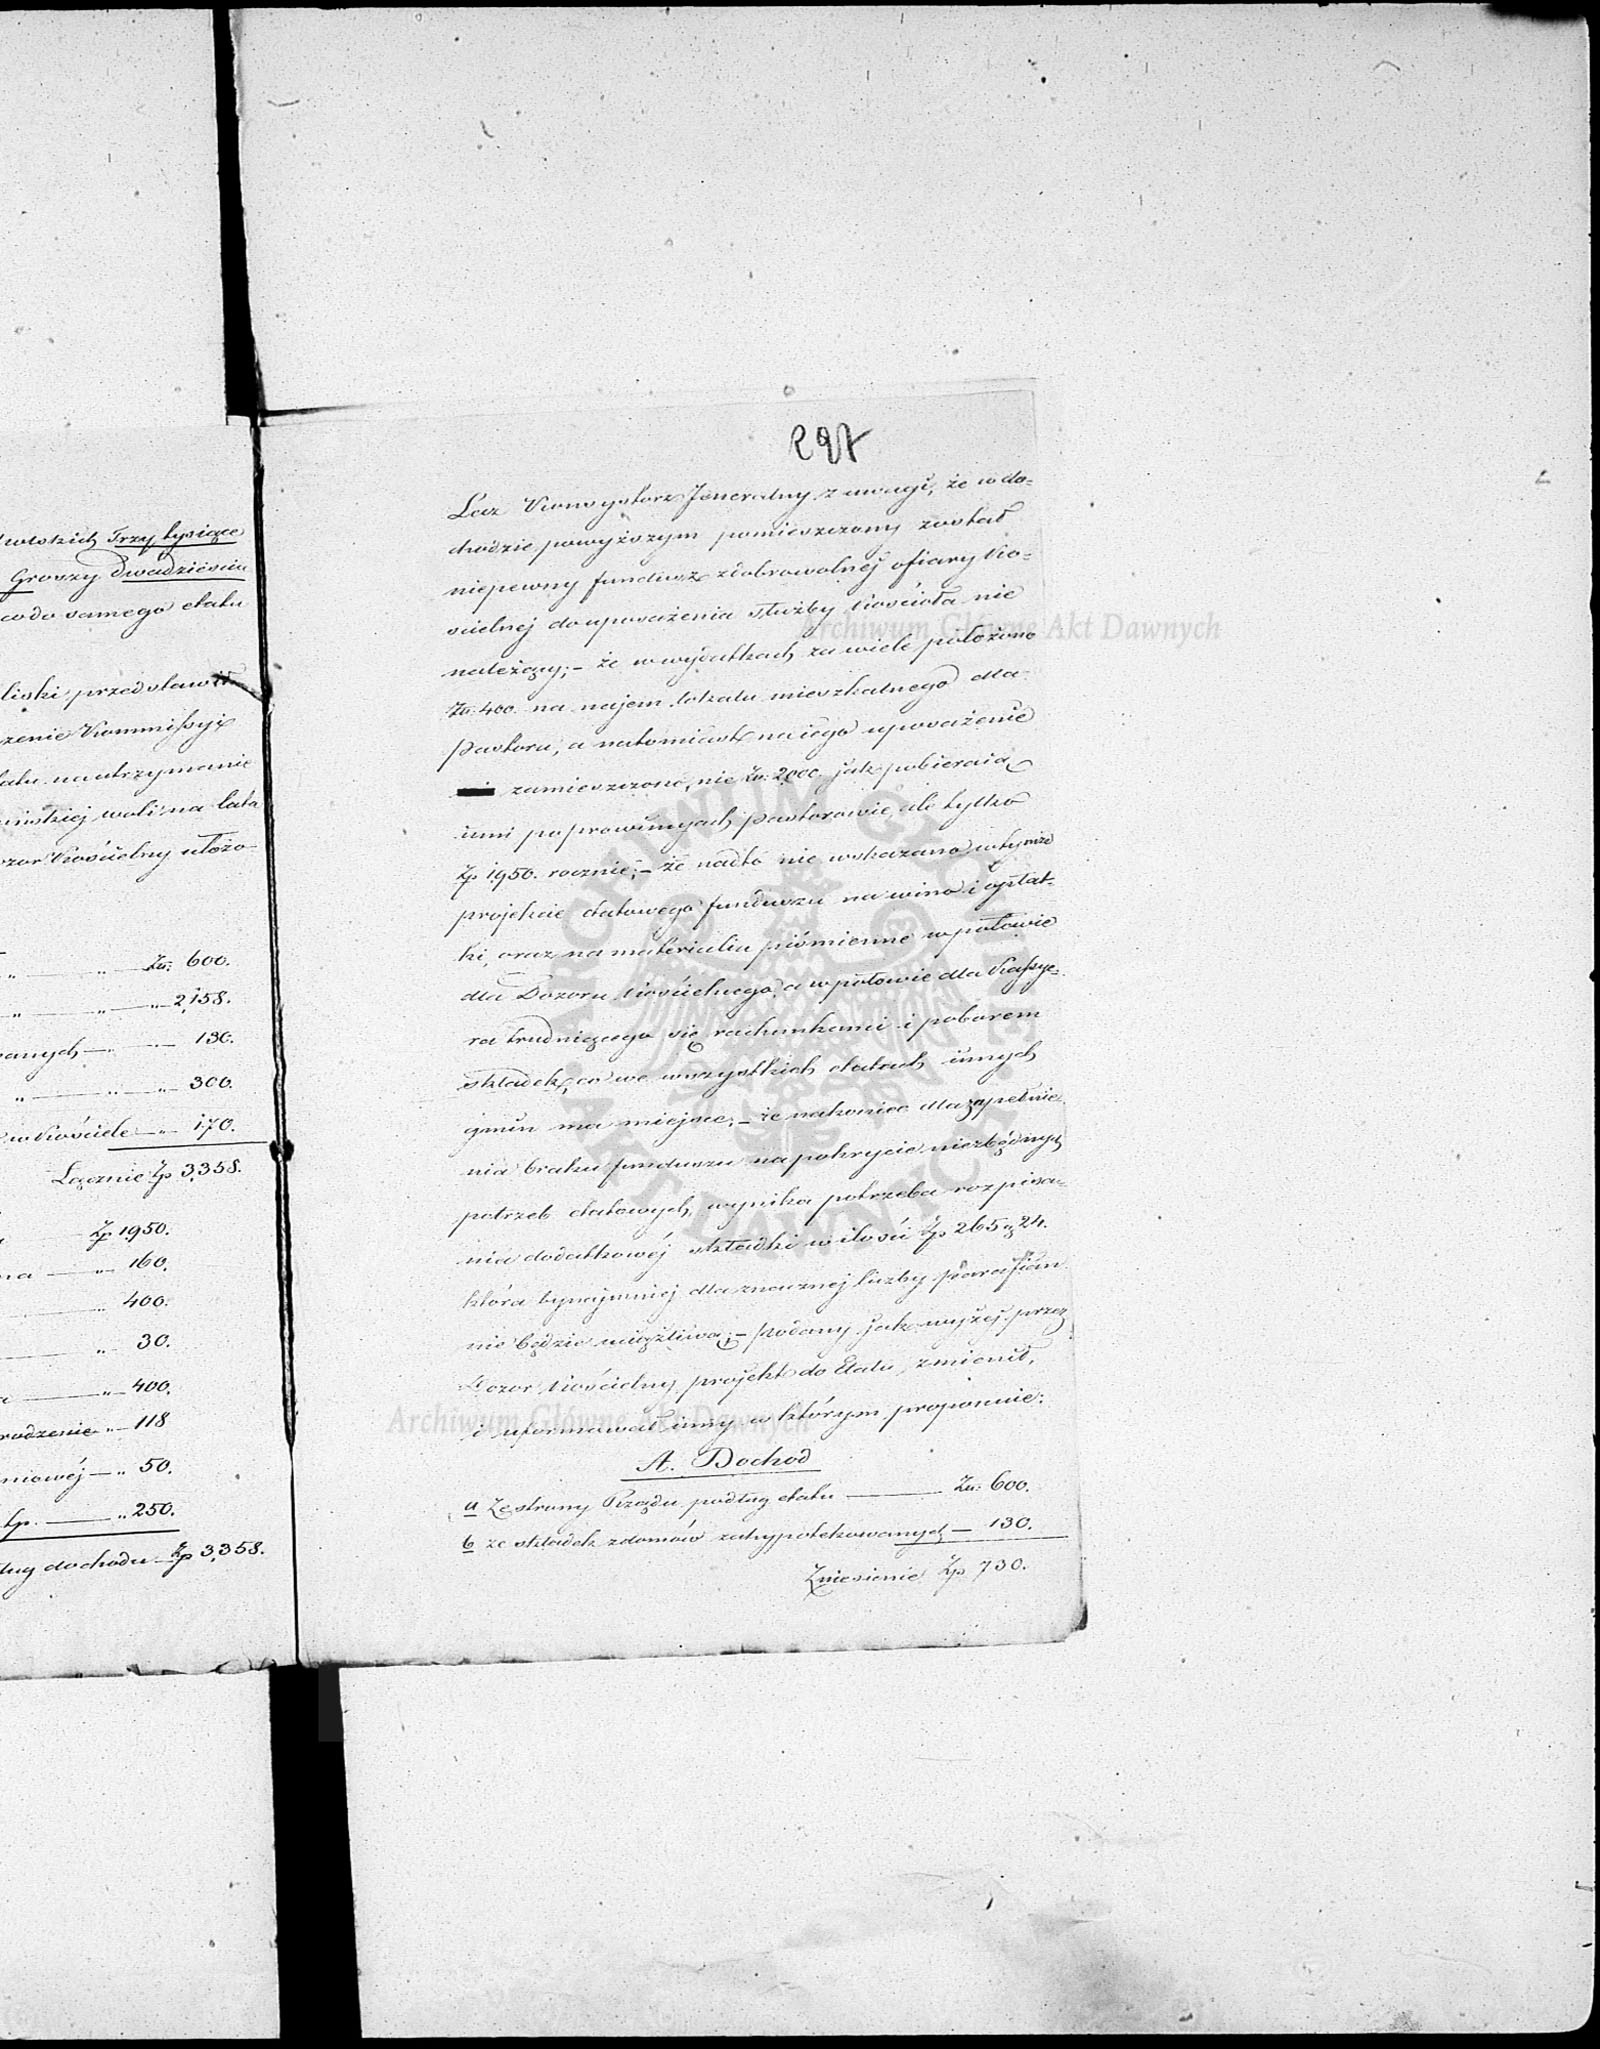 lwskich Trzy tysiące
Groszy dwadzieścia
codo samego etatu
liski przedstawił
zenie Kommissyi
natrzymanie
woli na lata
zor Kościelny ułożo-
" " Zł: 600.
" " " 2,158.
wanych " 130.
" " " 300.
w Kościele " 170.
Łącznie Zp 3,358.
Zp 1950.
na " 160.
" 400.
" 30.
a " 400.
rodzenie " 118
niowéj " 50.
tp. " 250.
ług dochodu Zp 3,358.
297
Lecz Konsystorz Jeneralny z uwagi, że w do-
chodzie powyższym pomieszczony został
niepewny fundusz z dobrowolnéj ofiary Ko-
ścielnéj do uposażenia służby Kościoła nie
należący; – że w wydatkach za wiele położono
Zł: 400. na najem lokalu mieszkalnego dla
Pastora, a natomiast na iego uposażenie
zamieszczono, nie Zł: 2000. jak pobieraią
inni po prowincyach Pastorowie, ale tylko
Zp 1950. rocznie; – że nadto nie wskazano w tymże
projekcie etatowego funduszu na wino i opłat-
ki, oraz na materialia piśmienne w połowie
dla Dozoru Kościelnego, a w połowie dla Kassye-
ra trudniącego się rachunkami i poborem
składek, co we wszystkich etatach innych
gmin ma miejsce; – że nakoniec dla zapełnie-
nia braku funduszu na pokrycie niezbędnych
potrzeb etatowych, wynika potrzeba rozpisa-
nia dodatkowéj składki w ilości Zp 265 g 24.
która bynajmniéj dla znacznéj liczby parafian
nie będzie uciążliwą; – podany jak wyżéj przez
Dozor Kościelny projekt do Etatu, zmienił,
i uformował inny w którym proponuie:
A. Dochod
a Ze strony Rządu podług etatu — Zł: 600.
b ze składek z domów zahypotekowanych — 130.
Zniesienie Zp 730.
Archiwum Główne Akt Dawnych
Archiwum Główne Akt Dawnych
ARCHIWUM GŁÓWNE AKT DAWNYCH